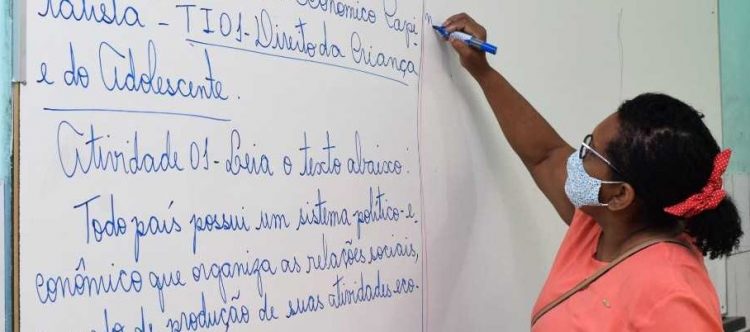 Econômico Capi
talista - TI01-Direito da Criança
e do Adolescente.
Atividade 01 - Leia o texto abaixo:
Todo país possui um sistema político-e
conômico que organiza as relações sociais,
de produção de suas atividades eco-